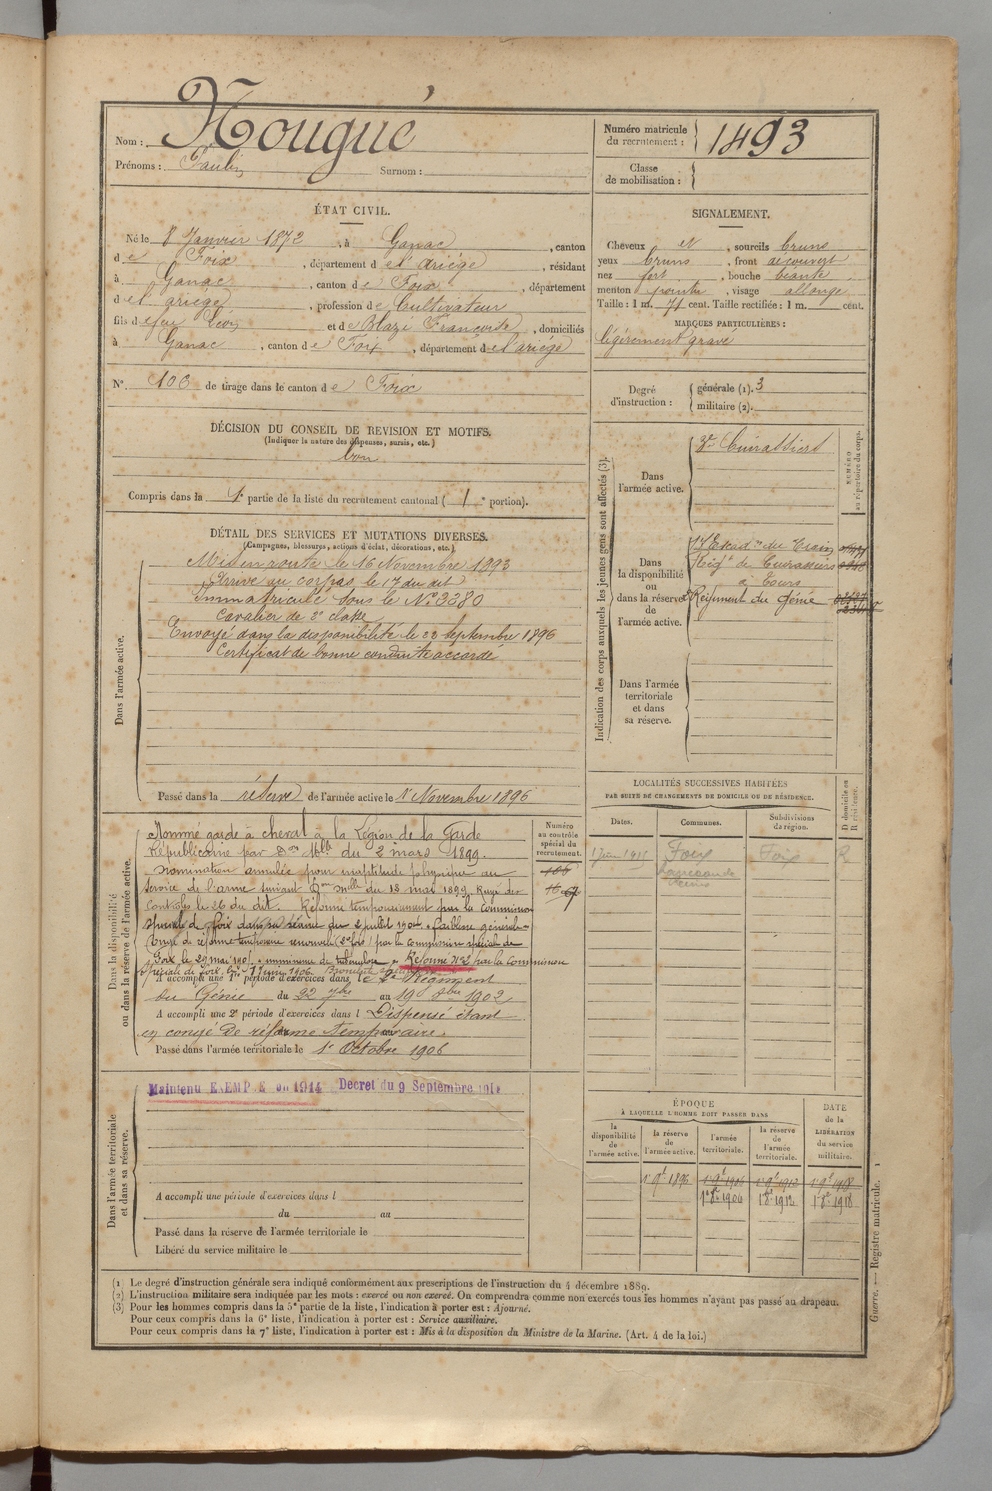 Nom : Nougué
Prénoms : Paulin Surnom :
Numéro matricule du recrutement : 1493
Classe de mobilisation :
ÉTAT CIVIL.
Né le 8 Janvier 1872, à Ganac, canton
de Foix, département de l'ariège, résidant
à Ganac, canton de Foix, département
de l'ariège, profession de Cultivateur
fils de feu et de Blazi Françoise, domiciliés
à Ganac, canton de Foix, département de l'ariège
N° 106 de tirage dans le canton de Foix
DÉCISION DU CONSEIL DE REVISION ET MOTIFS.
(Indiquer la nature des dispenses, sursis, etc.)
bon
Compris dans la 1e partie de la liste du recrutement cantonal ( 1e portion).
SIGNALEMENT.
Cheveux et, sourcils bruns
yeux bruns, front découvert
nez fort, bouche béante
menton pointu, visage allongé
Taille : 1 m. 71 cent. Taille rectifiée : 1 m. cent.
MARQUES PARTICULIÈRES :
légèrement gravé
Degré d'instruction : générale (1). 3
militaire (2).
DÉTAIL DES SERVICES ET MUTATIONS DIVERSES.
(Campagnes, blessures, actions d'éclat, décorations, etc.)
Dans l'armée active.
Mis en route le 16 Novembre 1893
Arrivé au corps, le 17 du dit
Immatriculé sous le N° 3280
Cavalier de 2e classe
Envoyé dans la disponibilité le 23 Septembre 1896
Certificat de bonne conduite accordé
Passé dans la réserve de l'armée active le 1er Novembre 1896
Indication des corps auxquels les jeunes gens sont affectés (3).
NUMÉRO au répertoire du corps.
Dans l'armée active.
3e Cuirassiers
Dans la disponibilité ou dans la réserve de l'armée active.
17 Escad on du Train
Régt de Cuirassiers
à Tours
2e Régiment du Génie
Dans l'armée territoriale et dans sa réserve.
LOCALITÉS SUCCESSIVES HABITÉES
PAR SUITE DE CHANGEMENTS DE DOMICILE OU DE RÉSIDENCE.
Dates. Communes. Subdivisions de région. D domicile ou R résidence.
Foix Foix R
Dans la disponibilité ou dans la réserve de l'armée active.
Numéro au contrôle spécial du recrutement.
106
67
Nommé garde à cheval à la Légion de la Garde
Républicaine par Don Mlle du 2 mars 1899.
nomination annulée pour inaptitude physique au
service de l'arme suivant Don Mlle du 18 mai 1899. Rayé des
contrôles le 26 du dit. Réformé temporairement par la commission
spéciale de Foix dans sa séance du 2 juillet 1904 "Faiblesse générale"
Congé de réforme temporaire renouvelé (2e fois) par la commission spéciale de
Foix le 29 mai 1905 "imminence de tuberculose" Réformé N° 2 par la Commission
spéciale de Foix, le 7 juin 1906.
A accompli une 1re période d'exercices dans le 2e Régiment
du Génie du 22 7bre au 19 8bre 1902
A accompli une 2e période d'exercices dans l Dispensé étant
en congé de réforme temporaire.
Passé dans l'armée territoriale le 1er Octobre 1906
Dans l'armée territoriale et dans sa réserve.
Maintenu EXEMPTÉ en 1914 Decret du 9 Septembre 1914
A accompli une période d'exercices dans l
du au
Passé dans la réserve de l'armée territoriale le
Libéré du service militaire le
ÉPOQUE
À LAQUELLE L'HOMME DOIT PASSER DANS
la disponibilité de l'armée active.
la réserve de l'armée active.
l'armée territoriale.
la réserve de l'armée territoriale.
DATE de la LIBÉRATION du service militaire.
1er 9bre 1896 1er 9bre 1906 1er 9bre 1912 1er 9bre 1918
1er 8bre 1906 1er 8bre 1912 1er 8bre 1918
(1) Le degré d'instruction générale sera indiqué conformément aux prescriptions de l'instruction du 4 décembre 1889.
(2) L'instruction militaire sera indiquée par les mots : exercé ou non exercé. On comprendra comme non exercés tous les hommes n'ayant pas passé au drapeau.
(3) Pour les hommes compris dans la 5e partie de la liste, l'indication à porter est : Ajourné.
Pour ceux compris dans la 6e liste, l'indication à porter est : Service auxiliaire.
Pour ceux compris dans la 7e liste, l'indication à porter est : Mis à la disposition du Ministre de la Marine. (Art. 4 de la loi.)
Guerre. — Registre matricule. 1